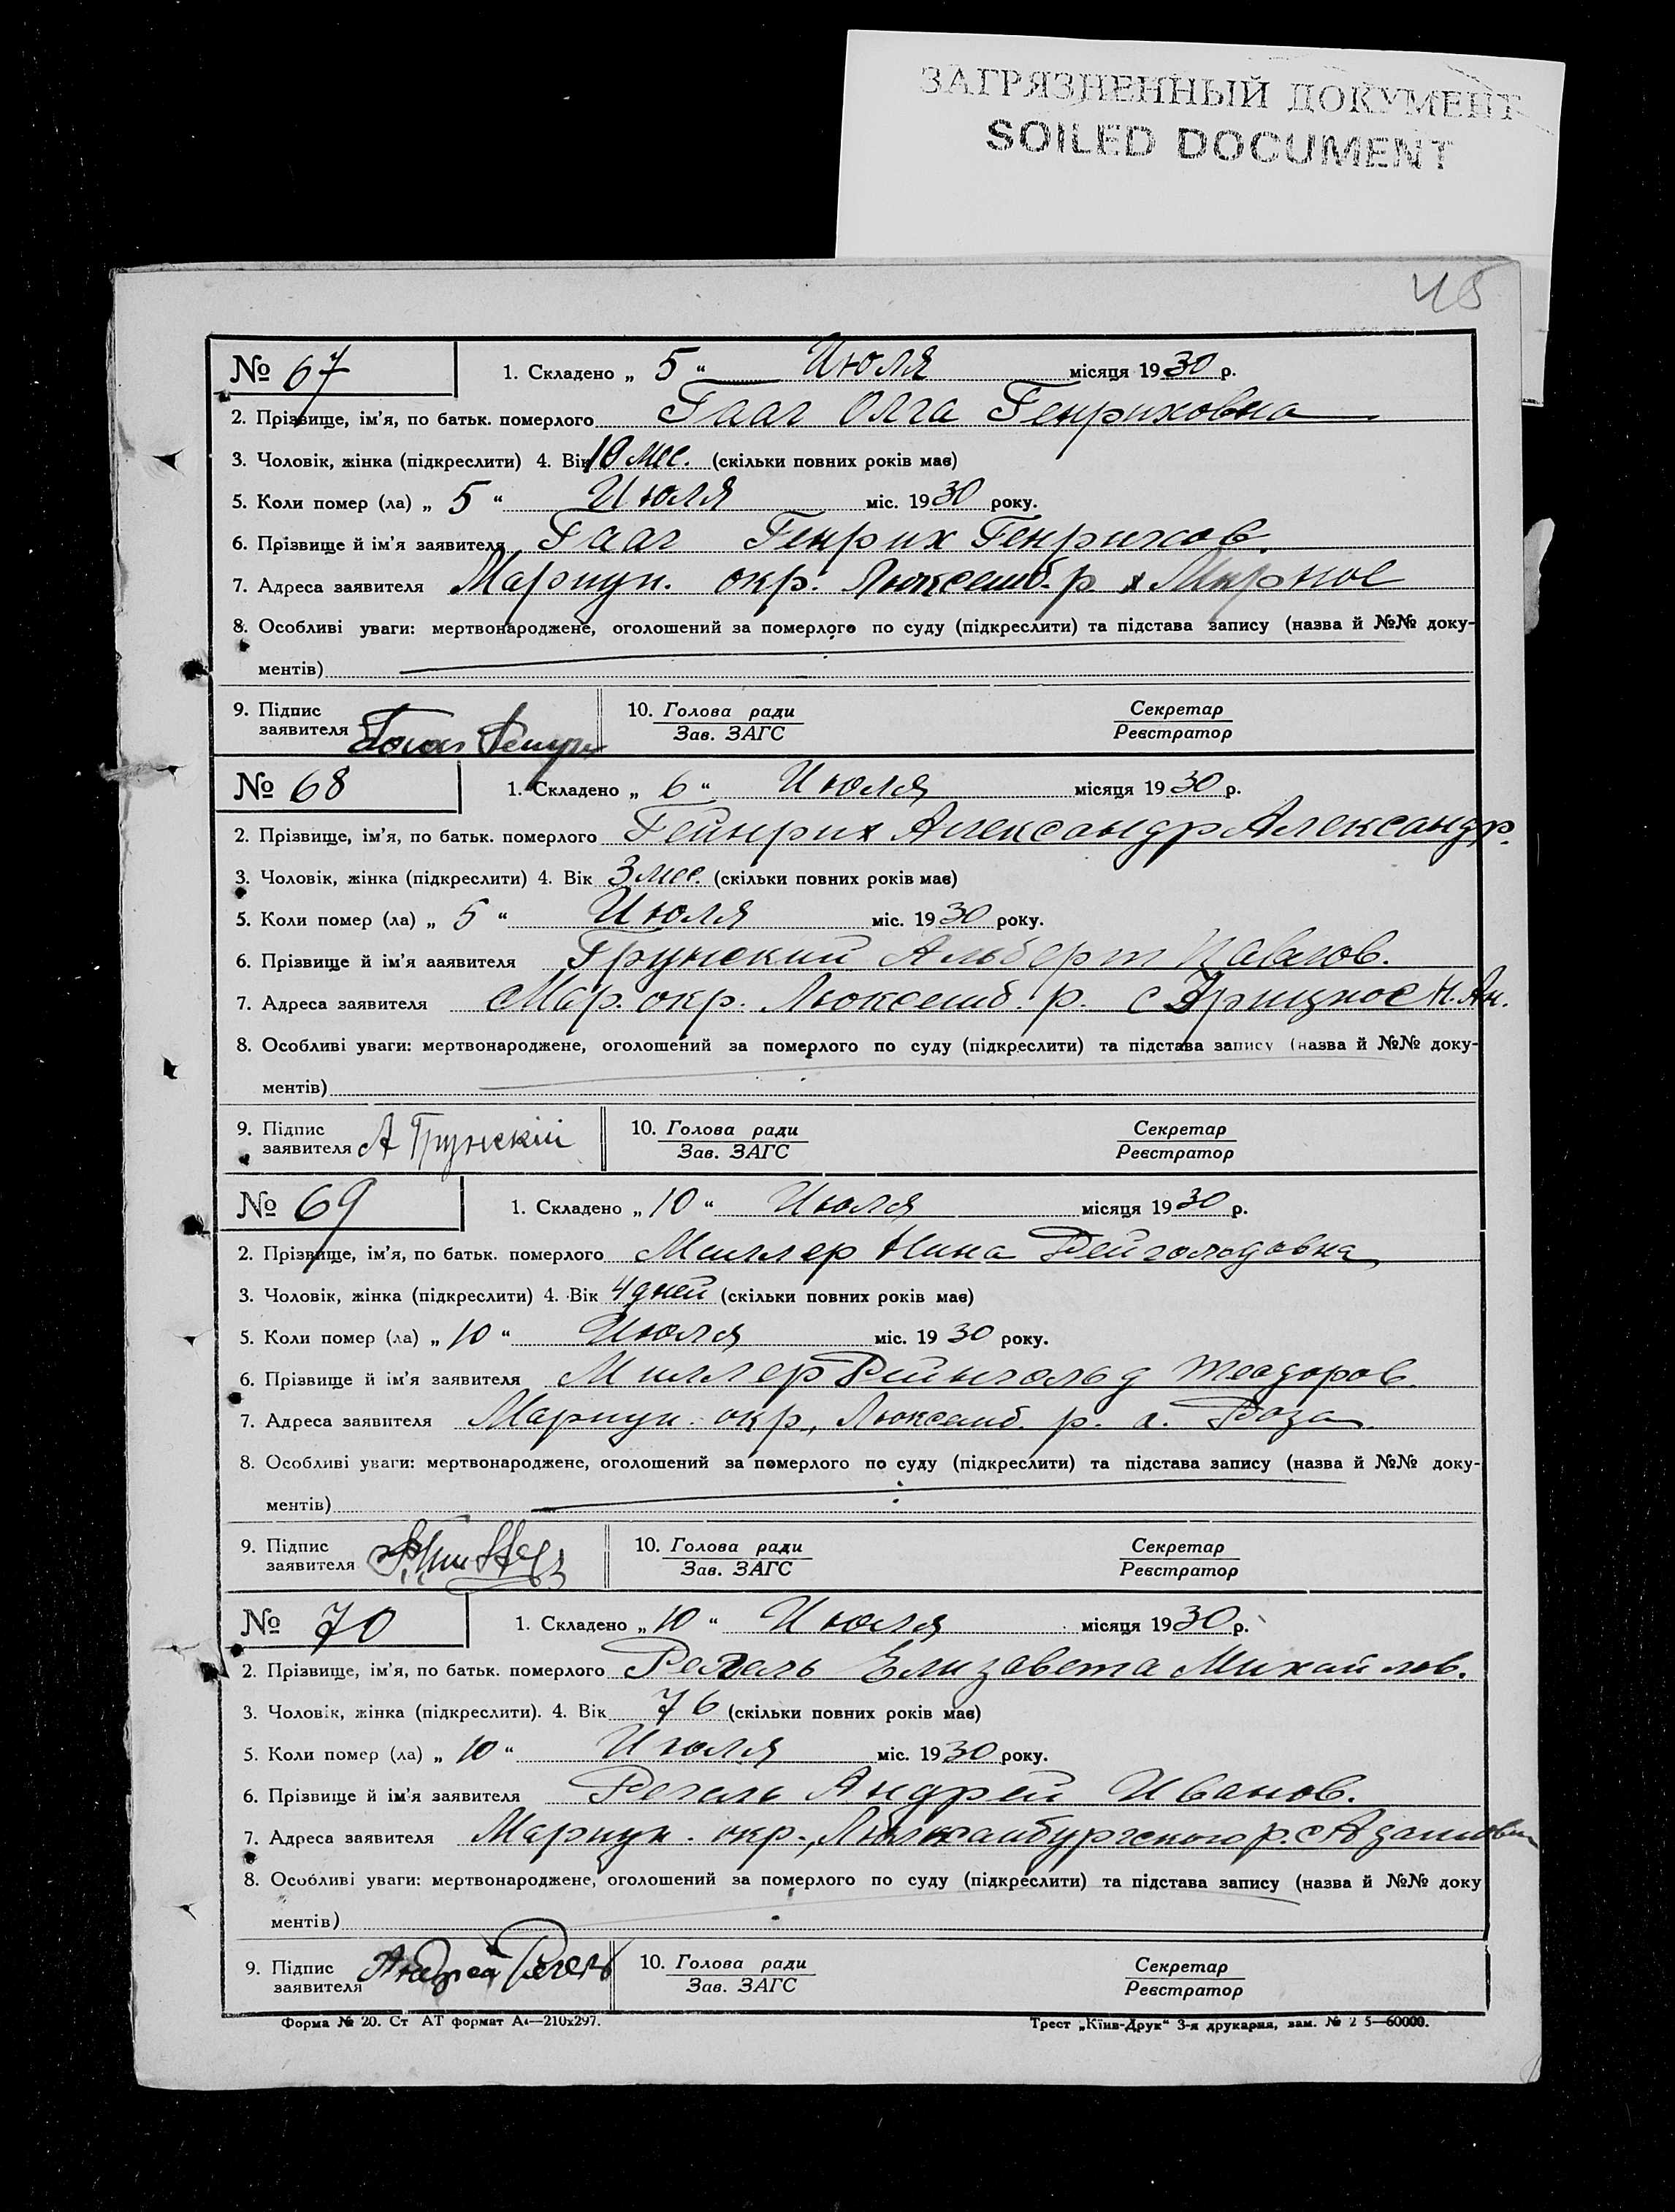 ЗАГРЯЗНЕННЫЙ ДОКУМЕНТ
SOILED DOCUMENT
45
№ 67 1. Складено „ 5 “ Июля місяця 1930 р.
2. Прізвище, ім’я, по батьк. померлого Гааг Олга Генриховна
3. Чоловік, жінка (підкреслити) 4. Вік 10 мес. (скільки повних років має)
5. Коли помер (ла) „ 5 “ Июля міс. 1930 року.
6. Прізвище й ім’я заявителя Гааг Генрих Генрихов.
7. Адреса заявителя Мариуп. окр. Люксемб. р. х Мирное
8. Особливі уваги: мертвонароджене, оголошений за померлого по суду (підкреслити) та підстава запису (назва й №№ доку-
ментів)
9. Підпис заявителя Гааг 10. Голова ради Секретар
Зав. ЗАГС Реєстратор
№ 68 1. Складено „ 6 “ Июля місяця 1930 р.
2. Прізвище, ім’я, по батьк. померлого Гейнрих Александр Александр.
3. Чоловік, жінка (підкреслити) 4. Вік 3 мес. (скільки повних років має)
5. Коли помер (ла) „ 5 “ Июля міс. 1930 року.
6. Прізвище й ім’я заявителя Грунский Альберт Павлов.
7. Адреса заявителя Мар. окр. Люксемб. р. с
8. Особливі уваги: мертвонароджене, оголошений за померлого по суду (підкреслити) та підстава запису (назва й №№ доку-
ментів)
9. Підпис заявителя А Грунскій 10. Голова ради Секретар
Зав. ЗАГС Реєстратор
№ 69 1. Складено „ 10 “ Июля місяця 1930 р.
2. Прізвище, ім’я, по батьк. померлого Миллер Нина Рейгольдовна
3. Чоловік, жінка (підкреслити) 4. Вік 4 дней (скільки повних років має)
5. Коли помер (ла) „ 10 “ Июля міс. 1930 року.
6. Прізвище й ім’я заявителя Миллер Рейнгольд Теодоров.
7. Адреса заявителя Мариуп. окр., Люксемб. р. х. Роза
8. Особливі уваги: мертвонароджене, оголошений за померлого по суду (підкреслити) та підстава запису (назва й №№ доку-
ментів)
9. Підпис заявителя 10. Голова ради Секретар
Зав. ЗАГС Реєстратор
№ 70 1. Складено „ 10 “ Июля місяця 1930 р.
2. Прізвище, ім’я, по батьк. померлого Регель Елизавета Михайлов.
3. Чоловік, жінка (підкреслити). 4. Вік 76 (скільки повних років має)
5. Коли помер (ла) „ 10 “ Июля міс. 1930 року.
6. Прізвище й ім’я заявителя Регель Андрей Иванов.
7. Адреса заявителя Мариуп. окр., Люксембургского р. с
8. Особливі уваги: мертвонароджене, оголошений за померлого по суду (підкреслити) та підстава запису (назва й №№ доку
ментів)
9. Підпис заявителя Андрей Регель 10. Голова ради Секретар
Зав. ЗАГС Реєстратор
Форма № 20. Ст АТ формат А4—210x297. Трест „Київ-Друк“ 3-я друкарня, зам. № 2 5—60000.